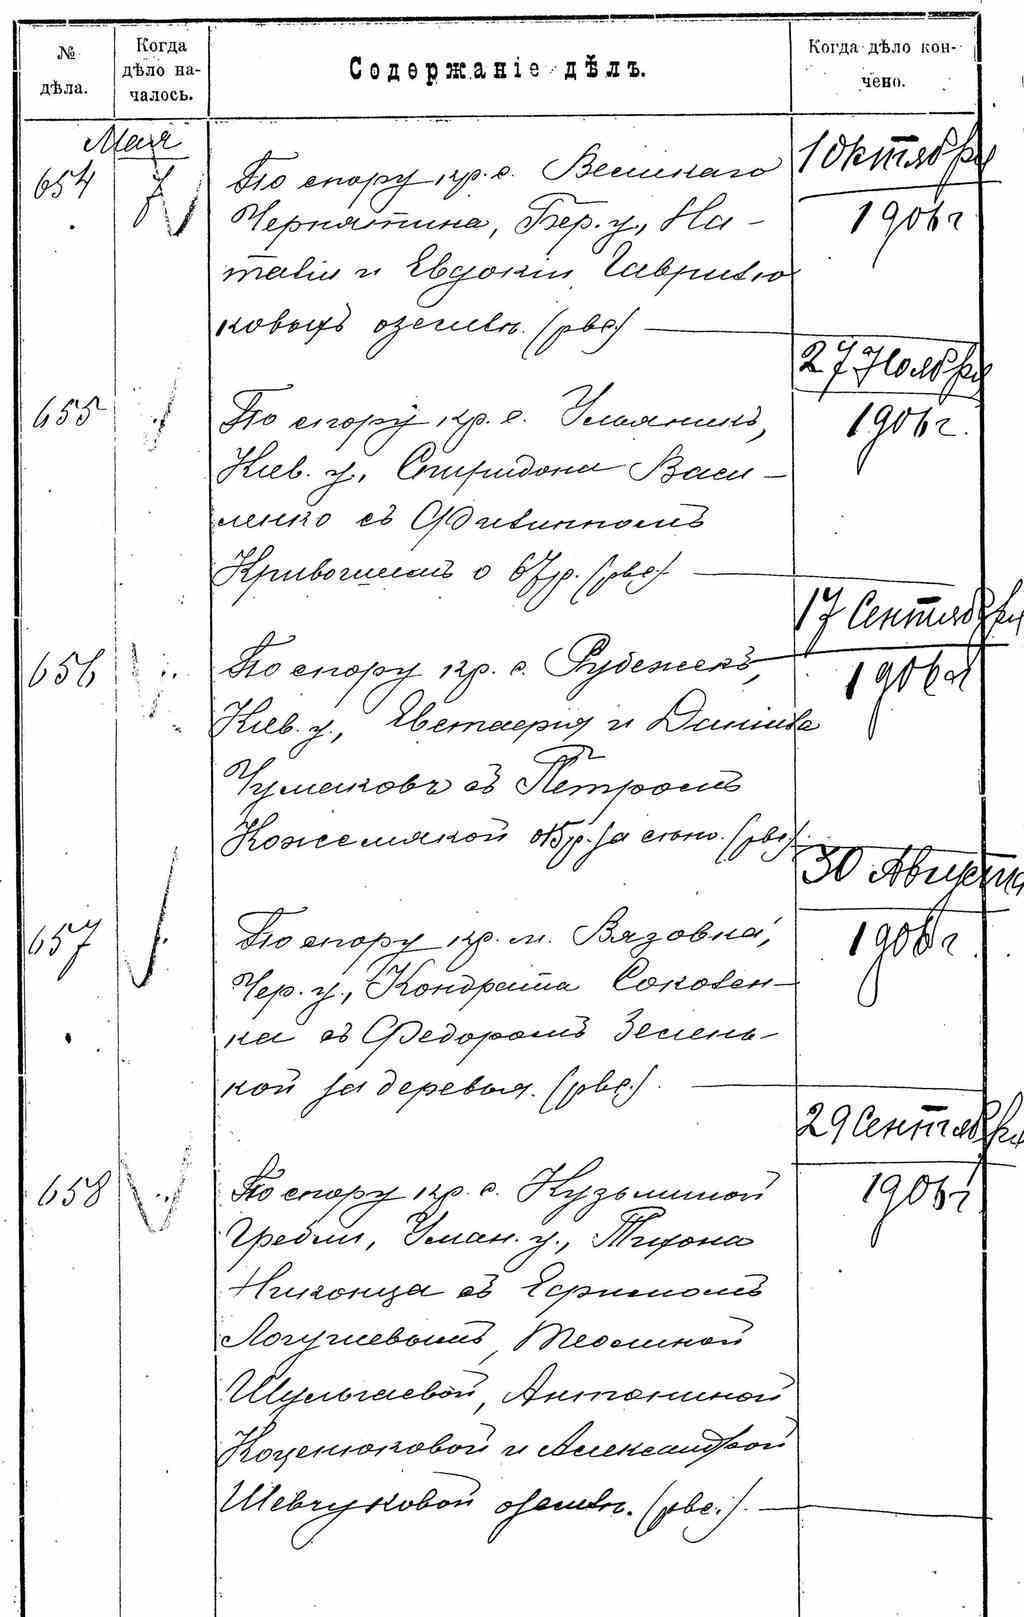 № дѣла.
Когда дѣло началось.
Содержаніе дѣлъ.
Когда дѣло кончено.
Мая
654
7
По спору кр. с. Великаго
Чернятина, Бер. у., На-
таліи и Евдокіи Гаврилю
ковыхъ о землѣ. (рвс)
1 Октября
1906 г
655
По спору кр. с. Ульяникъ,
Кіев. у., Спиридона Васи-
ленко съ Филиппомъ
о (рвс)
27 Ноября
1906 г.
656
По спору кр. с. Рубежекъ,
Кіев. у., Евстафія и Даніила
Чумаковъ съ Петромъ
Кожемякой за сѣно. (рвс).
17 Сентября
1906 г
657
По спору кр. м. Вязовка,
Чер. у., Кондрата Соколен-
ка съ Федоромъ Зелень-
кой за деревья. (рвс.).
30 Августа
1906 г
658
По спору кр. с. Кузьминой
Гребли, Уман. у., Тихона
Никонца съ Ефимомъ
Логучевымъ, Теклиной
Шульгаевой, Антониной
Коценюковой и Александрой
Шевчуковой о землѣ. (рвс.).
29 Сентября
1906 г